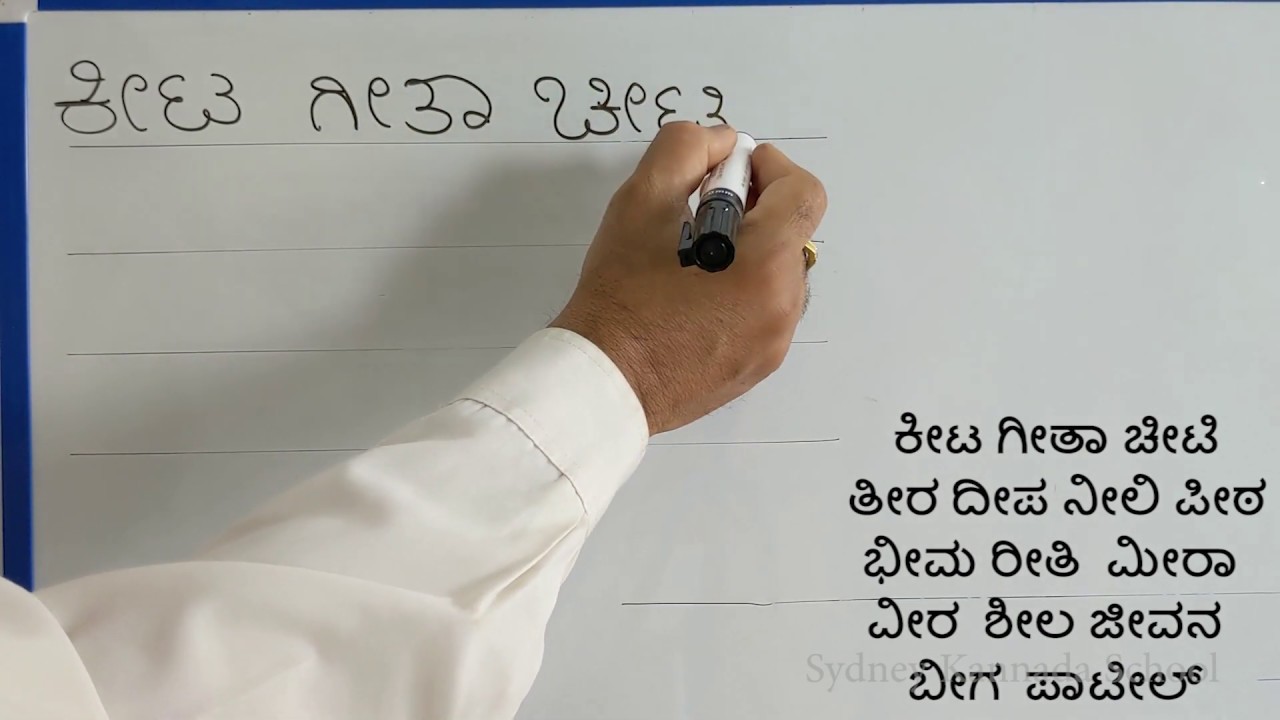 ಕೀಟ ಗೀತಾ ಚೀಟಿ
ಕೀಟ ಗೀತಾ ಚೀಟಿ
ತೀರ ದೀಪ ನೀಲಿ ಪೀಠ
ಭೀಮ ರೀತಿ ಮೀರಾ
ವೀರ ಶೀಲ ಜೀವನ
Sydney Kannada School
ಬೀಗ ಪಾಟೀಲ್